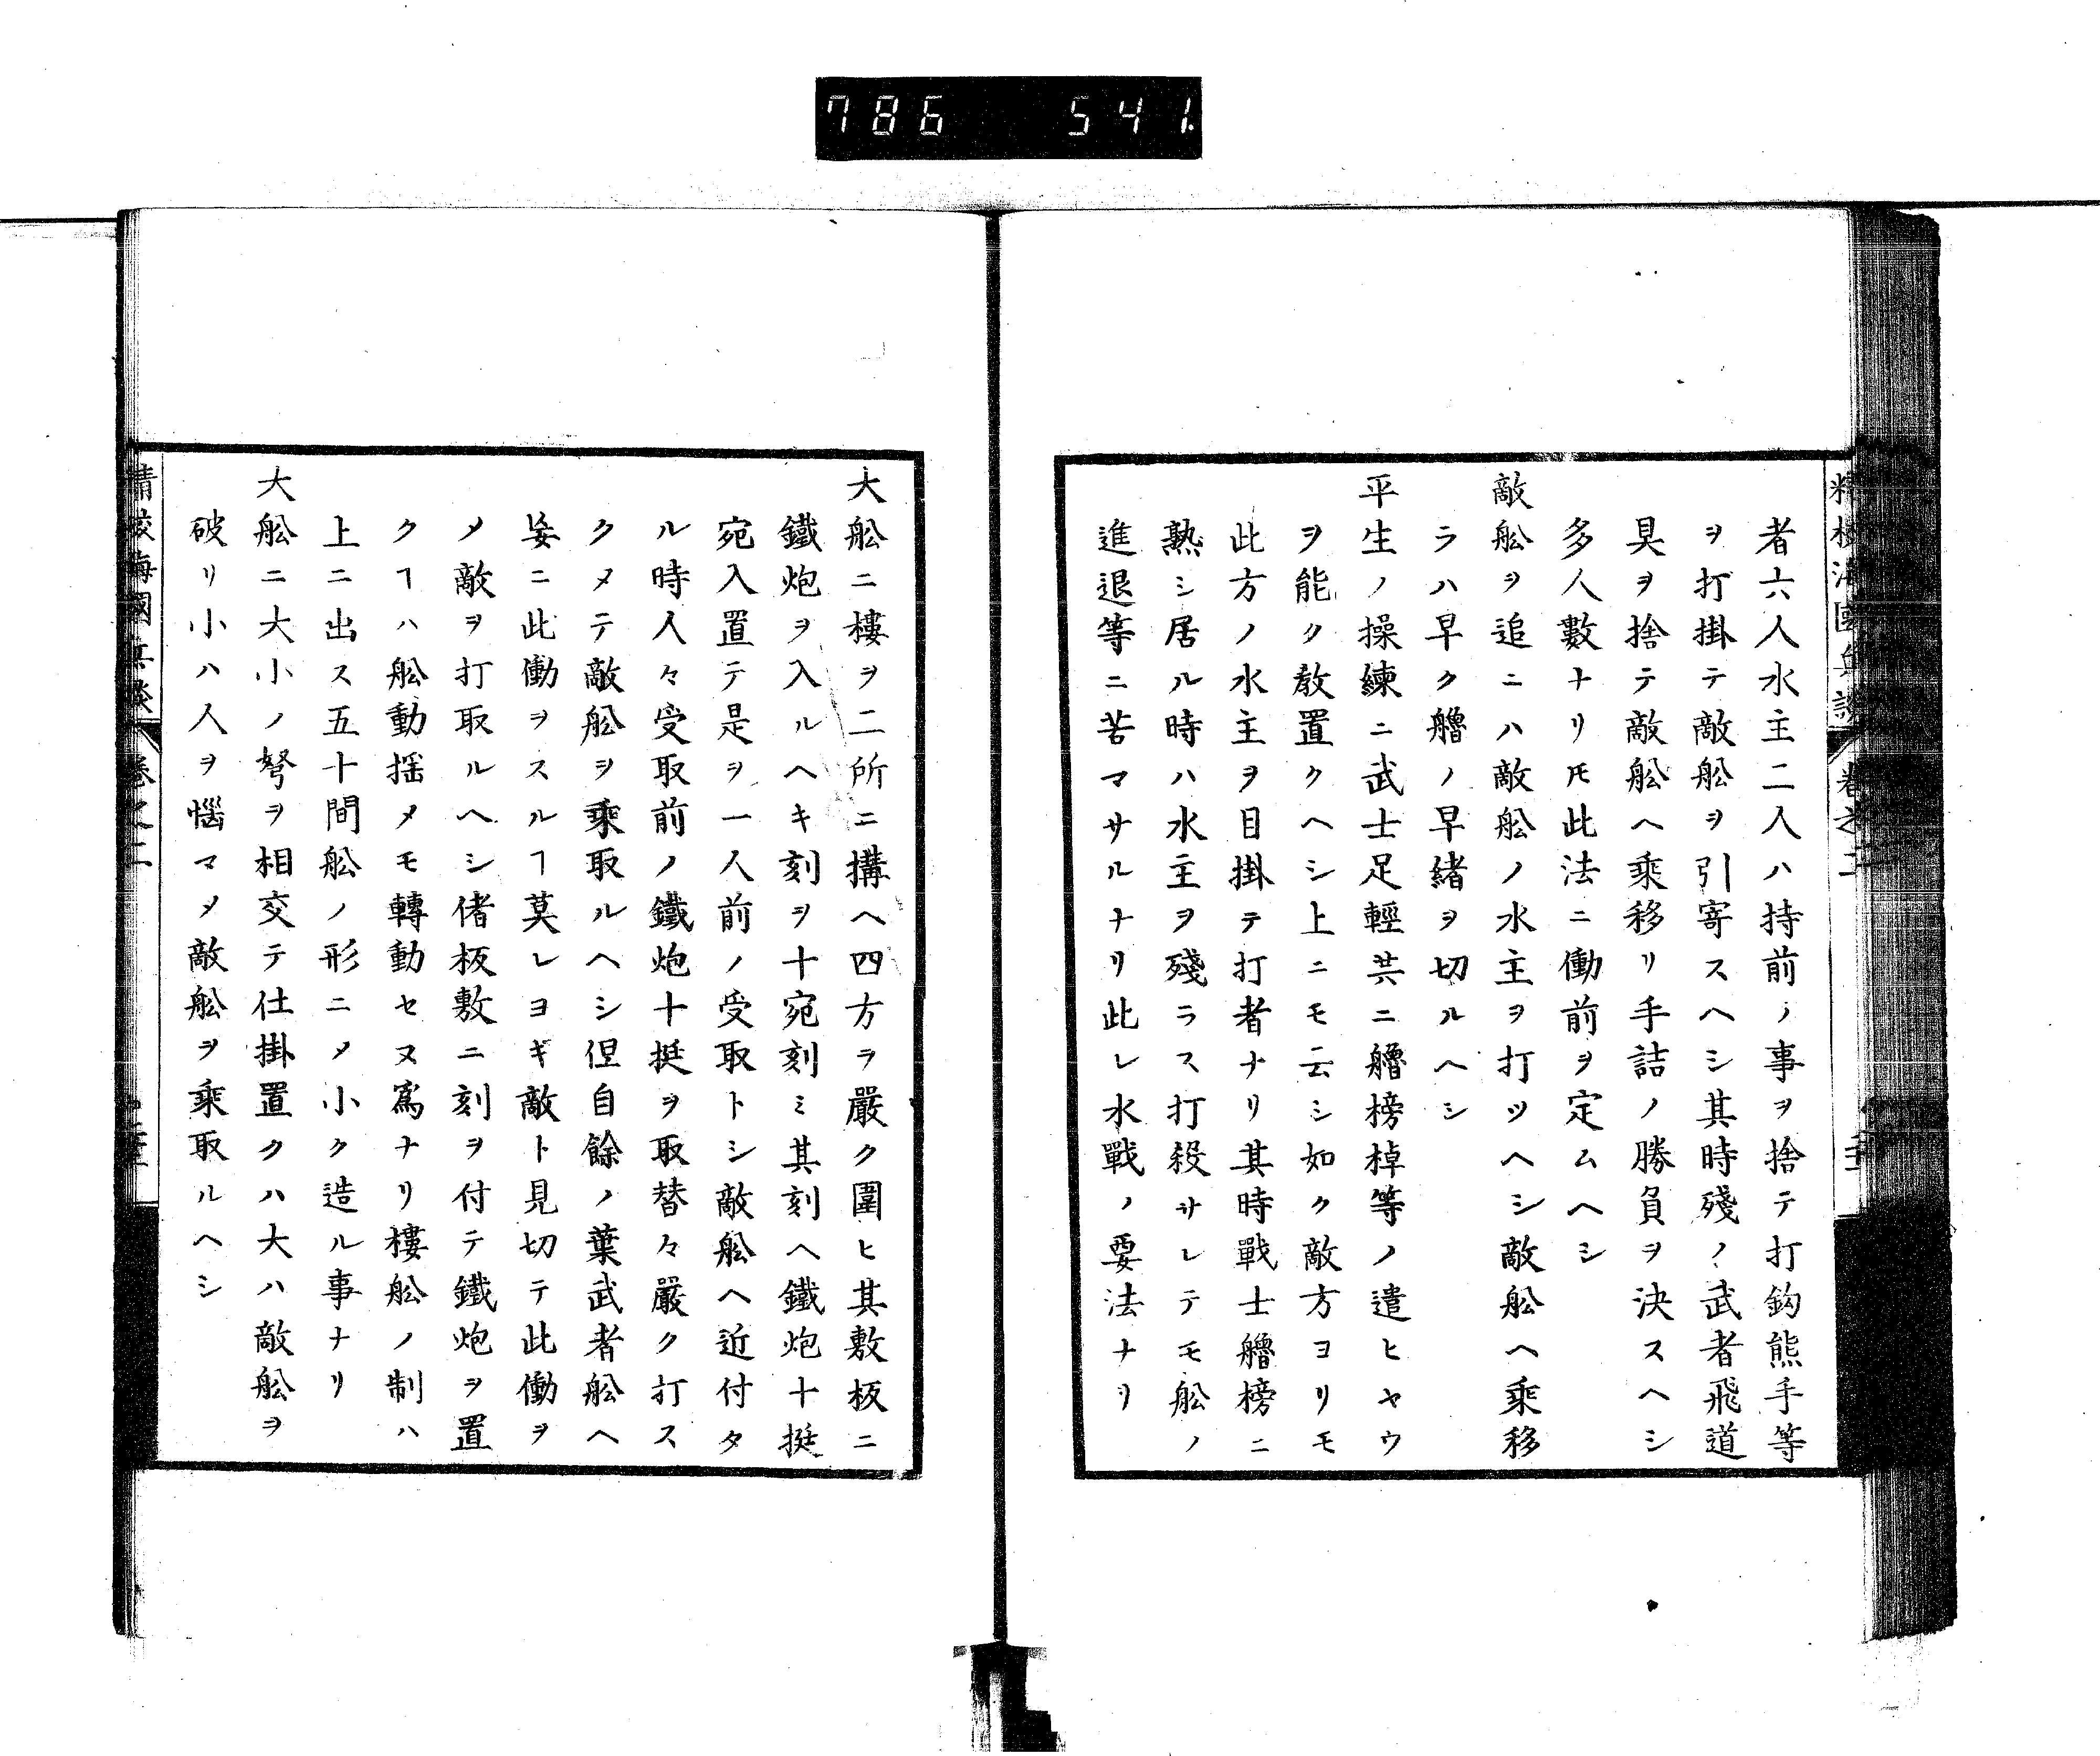 786 541
精校海國兵談 卷之二
者六人水主二人ハ持前ノ事ヲ捨テ打鈎熊手等
ヲ打掛テ敵舩ヲ引寄スヘシ其時殘ノ武者飛道
具ヲ捨テ敵舩ヘ乘移リ手詰ノ勝負ヲ決スヘシ
多人數ナリ𪜈此法ニ働前ヲ定ムヘシ
敵舩ヲ追ニハ敵舩ノ水主ヲ打ツヘシ敵舩ヘ乘移
ラハ早ク艪ノ早緒ヲ切ルヘシ
平生ノ操練ニ武士足輕共ニ艪榜棹等ノ遣ヒヤウ
ヲ能ク敎置クヘシ上ニモ云シ如ク敵方ヨリモ
此方ノ水主ヲ目掛テ打者ナリ其時戰士艪榜ニ
熟シ居ル時ハ水主ヲ殘ラス打殺サレテモ舩ノ
進退等ニ苦マサルナリ此レ水戰ノ要法ナリ
大舩ニ樓ヲ二所ニ搆ヘ四方ヲ嚴ク圍ヒ其敷板ニ
鐵炮ヲ入ルヘキ刻ヲ十宛刻ミ其刻ヘ鐵炮十挺
宛入置テ是ヲ一人前ノ受取トシ敵舩ヘ近付タ
ル時人々受取前ノ鐵炮十挺ヲ取替々嚴ク打ス
クメテ敵舩ヲ乘取ルヘシ但自餘ノ葉武者舩ヘ
妄ニ此働ヲスルヿ莫レヨキ敵ト見切テ此働ヲ
〆敵ヲ打取ルヘシ偖板敷ニ刻ヲ付テ鐵炮ヲ置
クヿハ舩動揺メモ轉動セヌ爲ナリ樓舩ノ制ハ
上ニ出ス五十間舩ノ形ニ〆小ク造ル事ナリ
大舩ニ大小ノ弩ヲ相交テ仕掛置クハ大ハ敵舩ヲ
破リ小ハ人ヲ惱マ〆敵舩ヲ乘取ルヘシ
精校海國兵談 卷之二